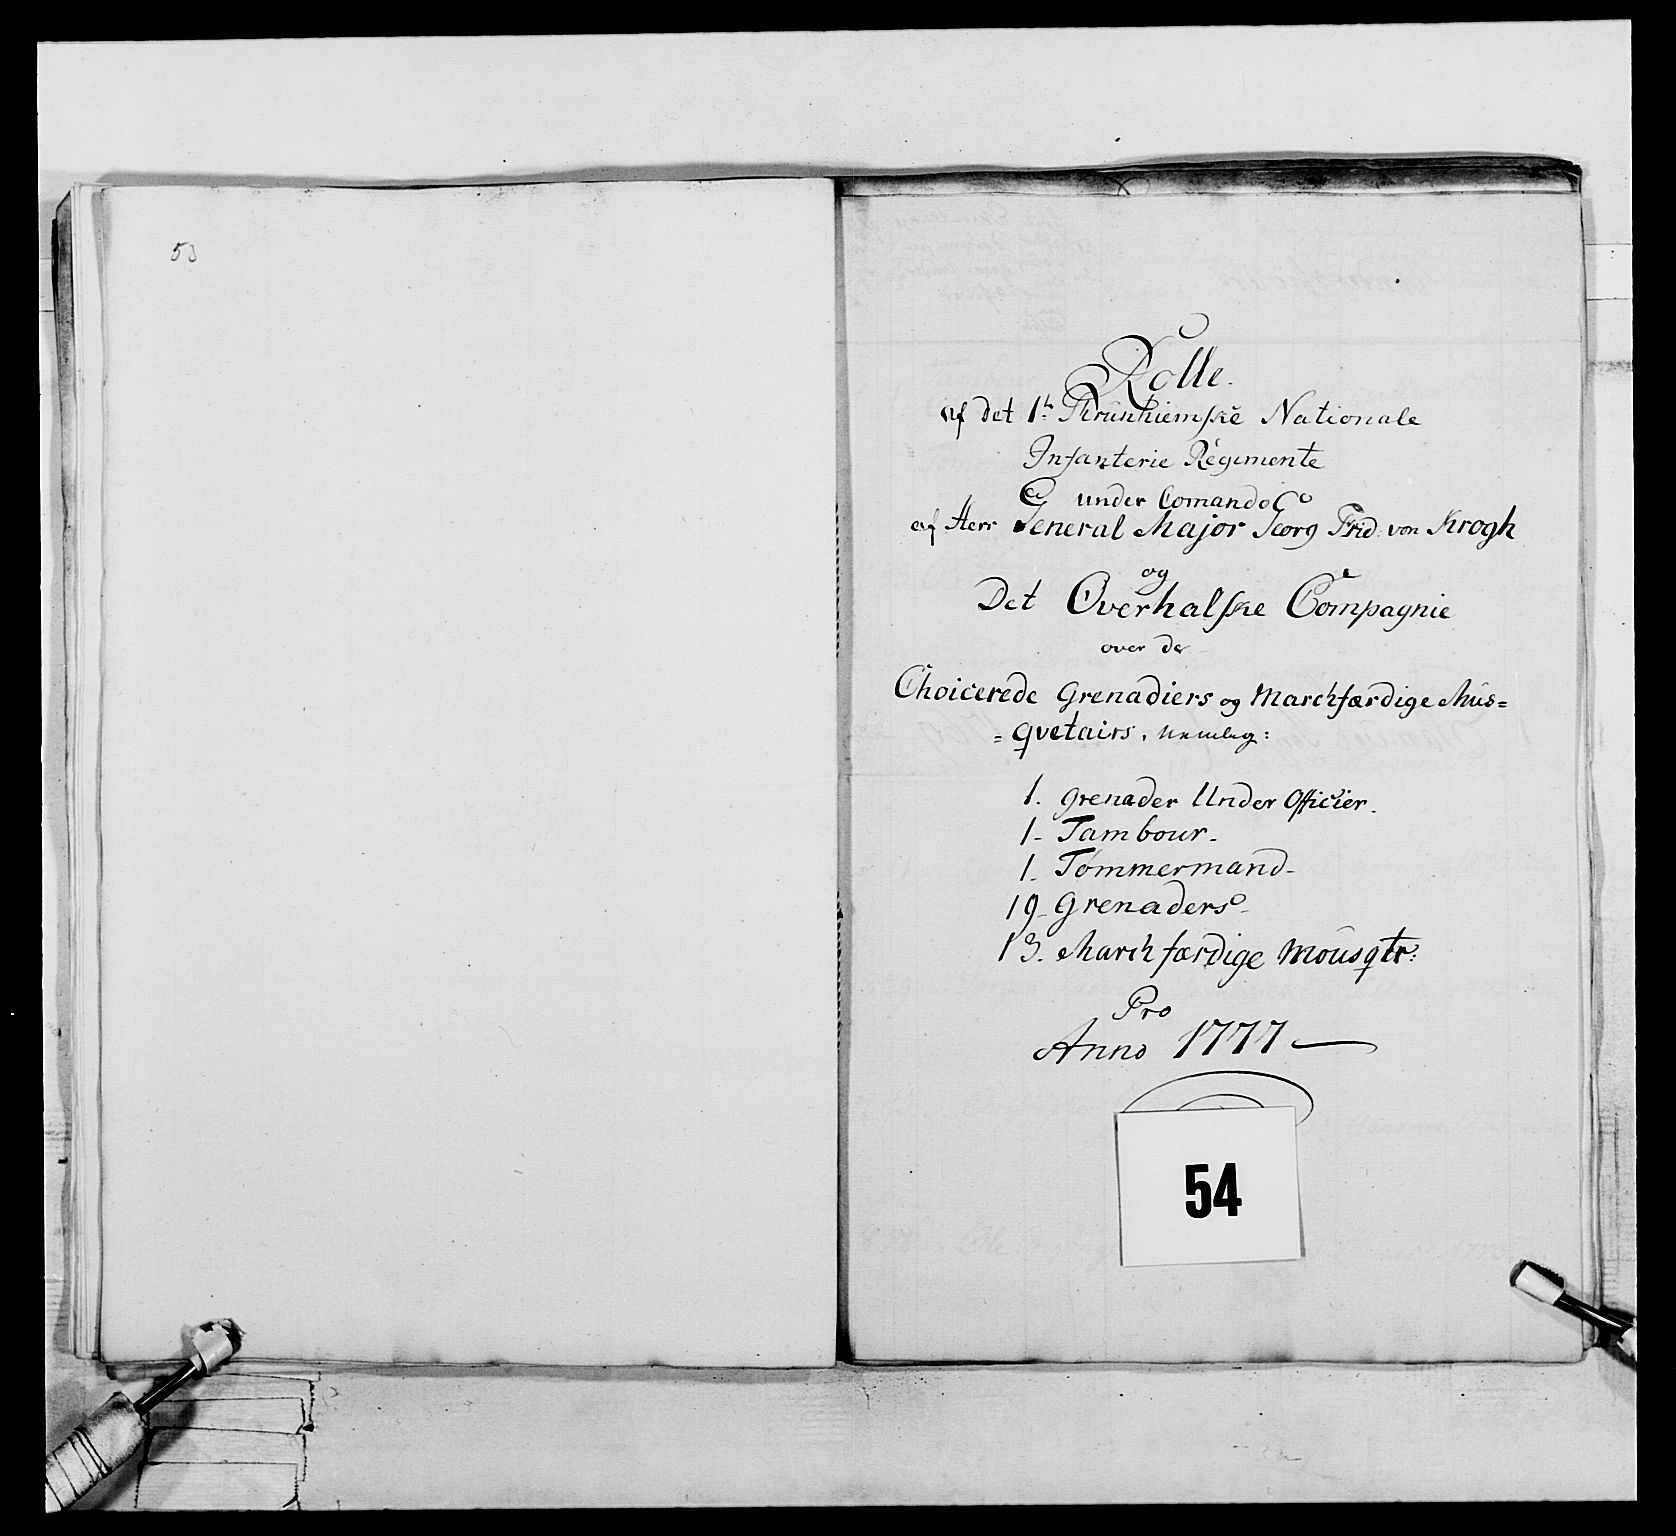 53
Rolle.
af det 1te Thrunhiemske Nationale
Infanterie Regimente
under Comando
af Herr General Major Georg Frid: von Krogh
og
Det Overhalske Compagnie
over de
Choicerede Grenadiers og Marchfærdige Mus=
=qvetairs, nemlig:
1. Grenader Under Officier.
1- Tambour.
1- Tømmermand-
19- Grenaders-
13. Marchfærdige Mousqtr:
Pro
Anno 1777
54